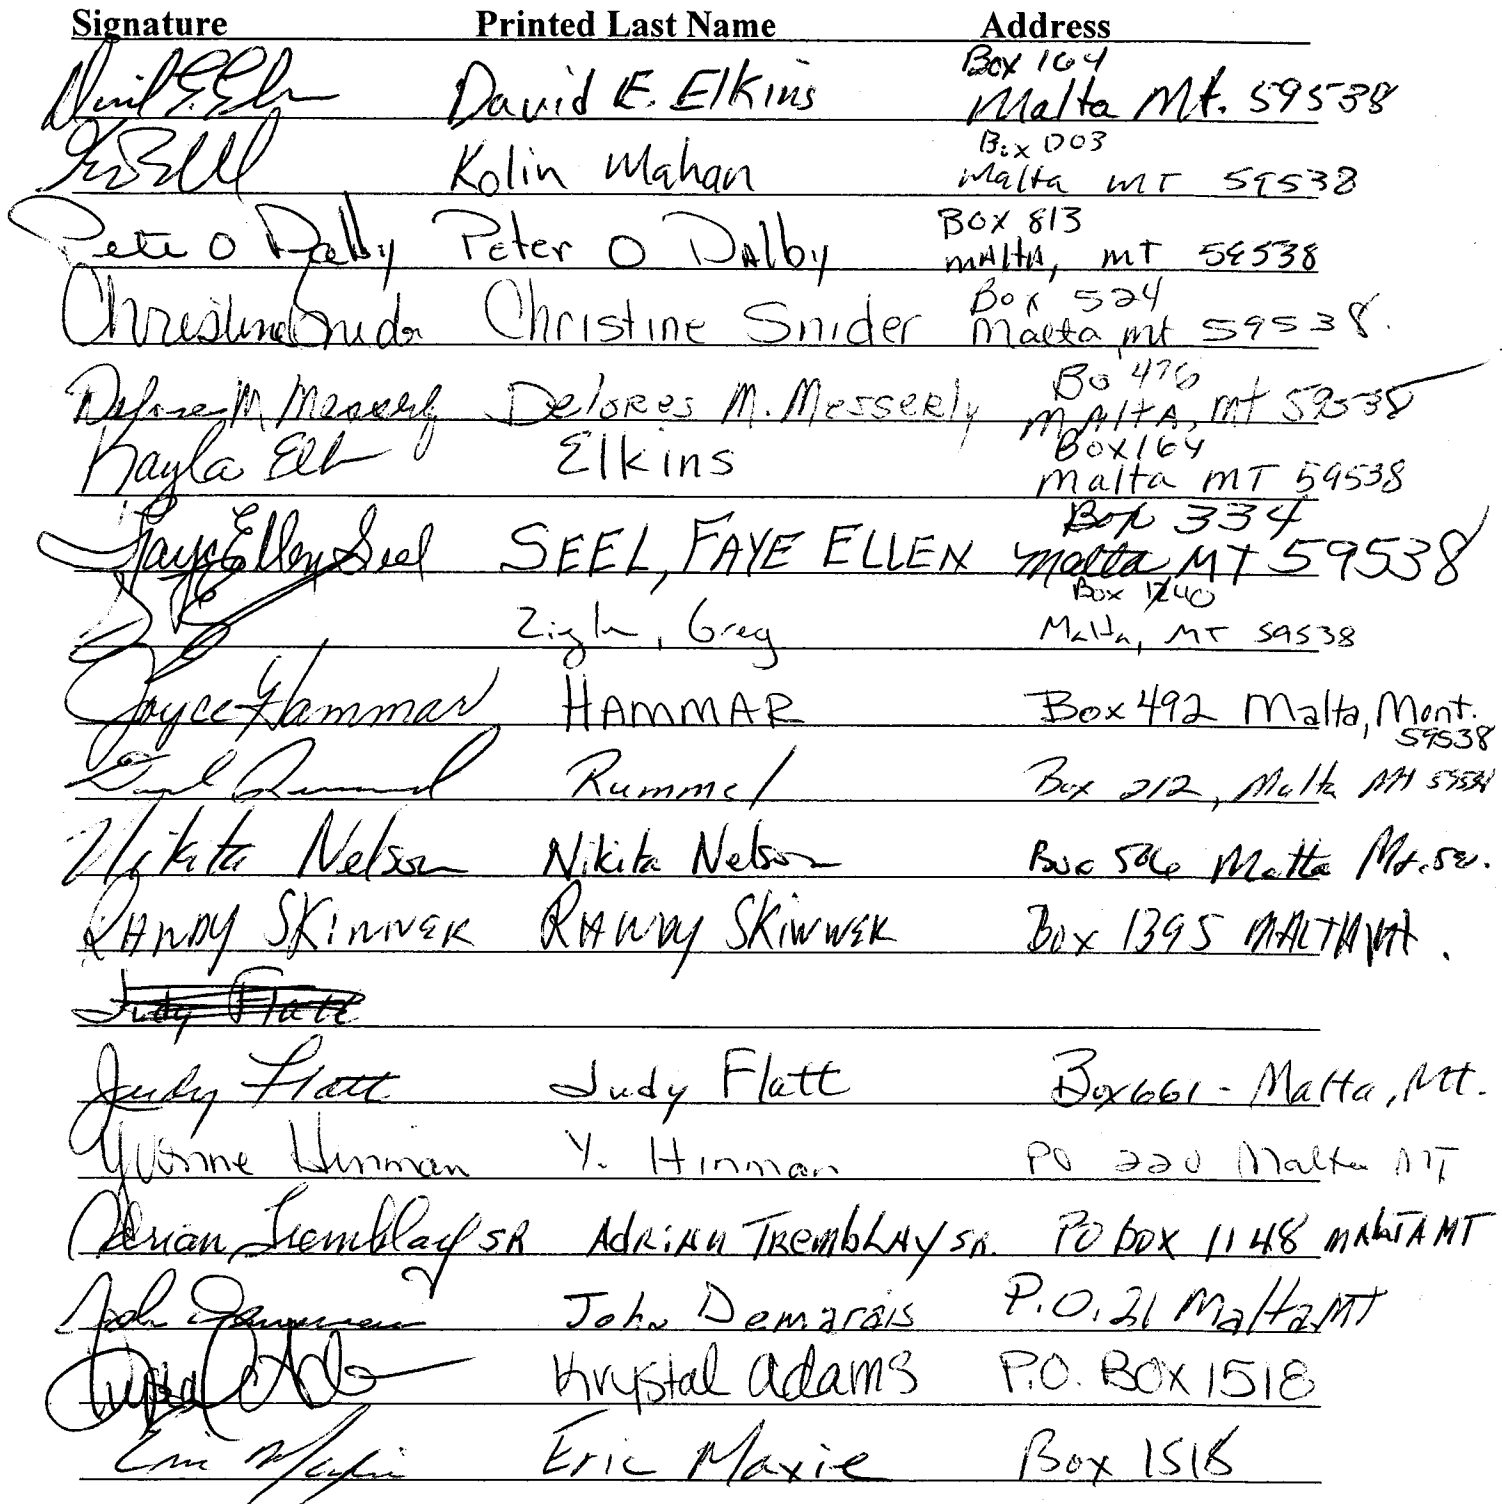 Signature Printed Last Name Address
Box 164
David E. Elkins Malta Mt. 59538
Box 1003
Kolin Mahan Malta MT 59538
Box 813
Pete O Dalby Peter O Dalby Malta, MT 59538
Box 524
Christine Snider Christine Snider Malta, mt 59538.
Bo 476
Delores M Messerly Delores M. Messerly Malta, mt 59538
Box 164
Kayla Elk Elkins Malta MT 59538
Box 334
Faye Ellen Seel SEEL, FAYE ELLEN Malta MT 59538
Box 1240
Zigler, Greg Malta, MT 59538
Joyce Hammar HAMMAR Box 492 Malta, Mont.
59538
Rummel Rummel Box 212, Malta Mt 59538
Nikita Nelson Nikita Nelson Box 506 Malta Mt.
RANDY SKINNER RANDY SKINNER Box 1395 MALTA Mt.
Judy Flatt
Judy Flatt Judy Flatt Box 661 - Malta, Mt.
Yvonne Hinman Y. Hinman PO 220 Malta MT
Adrian Tremblay SR Adrian Tremblay SR. PO box 1148 MALTA MT
John Demarais John Demarais P.O. 21 Malta MT
Krystal Adams P.O. BOX 1518
Eric Maxie Eric Maxie Box 1518